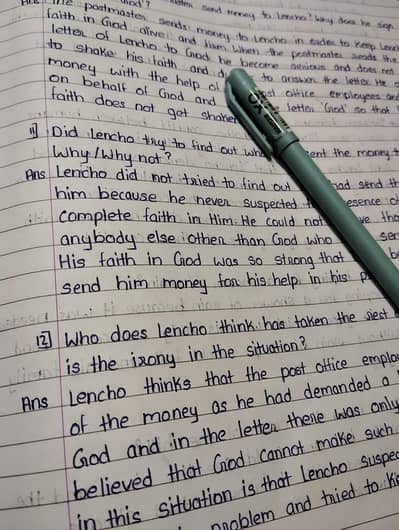 written send money to Lencho? Why does he sign
Ans The postmaster sends money to Lencho in order to keep Lencho
faith in God alive and ham. When the postmaster reads the
letter of Lencho to God, he become serious and does not
to shake his faith and to answer the letter. He
money with the help of post office employees and
on behalf of God and letter 'God' so that
faith does not get shaken
11] Did Lencho try to find out who sent the money
Why/Why not?
Ans Lencho did not tried to find out had send
him because he never suspected
complete faith in Him. He could not
anybody else other than God who
His faith in God was so strong that
send him money for his help in his
12] Who does Lencho think has taken the rest
is the irony in the situation?
Ans Lencho thinks that the post office
of the money as he had demanded a
God and in the letter there was only
believed that God cannot make such
in this situation is that Lencho
problem and tried to